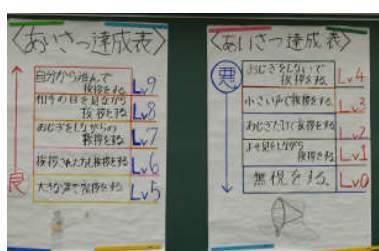 〈あいさつ達成表〉
自分から進んで
挨拶をする。
Lv9
相手の目を見ながら
挨拶をする
Lv8
おじぎをしながらの
挨拶をする
Lv7
挨拶されたら挨拶をする
Lv6
大きな声で挨拶をする
Lv5
良
〈あいさつ達成表〉
悪
おじぎをしないで
挨拶をする。
Lv4
小さい声で挨拶をする。
Lv3
おじぎだけで挨拶をする
Lv2
よそ見をしながら
挨拶をする
Lv1
無視をする。
Lv0